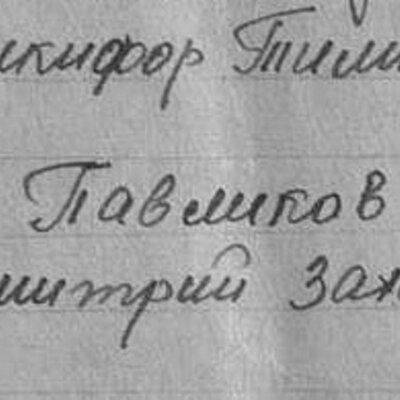 икифор Тими
Павликов
митрий Зах